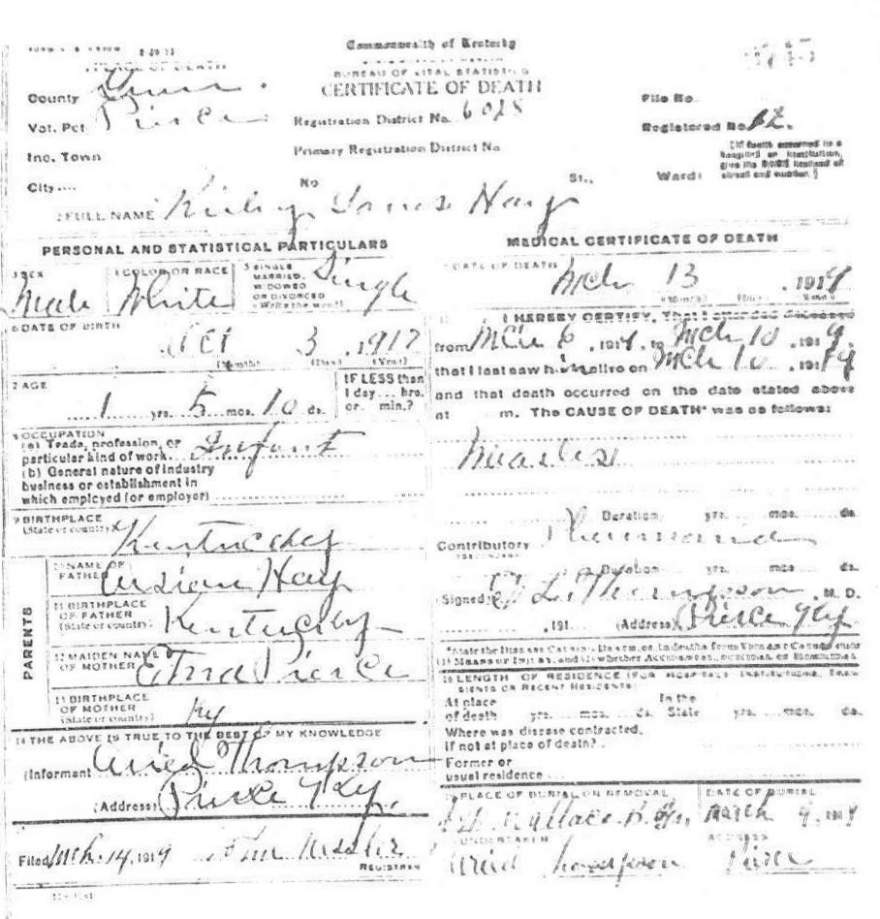 Commonwealth of Kentucky
PLACE OF DEATH
BUREAU OF VITAL STATISTICS
CERTIFICATE OF DEATH
County
Vot. Pct Pierce Registration District No. 6028 File No.
Inc. Town Primary Registration District No Registered No. 12.
City.... No St., Ward)
[If death occurred in a hospital or institution, give its NAME instead of street and number.]
2 FULL NAME James Hay
PERSONAL AND STATISTICAL PARTICULARS
3 SEX Male COLOR OR RACE White 5 SINGLE MARRIED, WIDOWED OR DIVORCED (Write the word) Single
6 DATE OF BIRTH
Oct 3, 1917
(Month) (Day) (Year)
7 AGE
1 yrs. 5 mos. 10 ds. IF LESS than 1 day... hrs. or... min.?
8 OCCUPATION
(a) Trade, profession, or
particular kind of work Infant
(b) General nature of industry
business or establishment in
which employed (or employer)
9 BIRTHPLACE
(State or country) Kentucky
PARENTS
10 NAME OF
FATHER Hay
11 BIRTHPLACE
OF FATHER
(State or country) Kentucky
12 MAIDEN NAME
OF MOTHER Pierce
13 BIRTHPLACE
OF MOTHER
(State or country) Ky
14 THE ABOVE IS TRUE TO THE BEST OF MY KNOWLEDGE
(Informant Thompson
(Address) Pierce Ky.
Filed Mch. 14, 1919
REGISTRAR
MEDICAL CERTIFICATE OF DEATH
DATE OF DEATH
Mch 13, 1919
(Month) (Day) (Year)
I HEREBY CERTIFY, That I attended deceased
from Mch 6, 1919, to Mch 10, 1919,
that I last saw him alive on Mch 10, 1919
and that death occurred on the date stated above
at m. The CAUSE OF DEATH* was as follows:
Measles
Duration yrs. mos. ds.
Contributory
Duration yrs. mos. ds.
(Signed) Thompson, M. D.
, 191 (Address) Pierce Ky
*State the DISEASE CAUSING DEATH, or, in deaths from VIOLENT CAUSES state
(1) MEANS OF INJURY, and (2) whether ACCIDENTAL, SUICIDAL or HOMICIDAL
18 LENGTH OF RESIDENCE (FOR HOSPITALS, INSTITUTIONS, TRANSIENTS OR RECENT RESIDENTS)
At place In the
of death yrs. mos. ds. State yrs. mos. ds.
Where was disease contracted,
if not at place of death?
Former or
usual residence
PLACE OF BURIAL OR REMOVAL DATE OF BURIAL
Wallace March
UNDERTAKER ADDRESS
Thompson Pierce